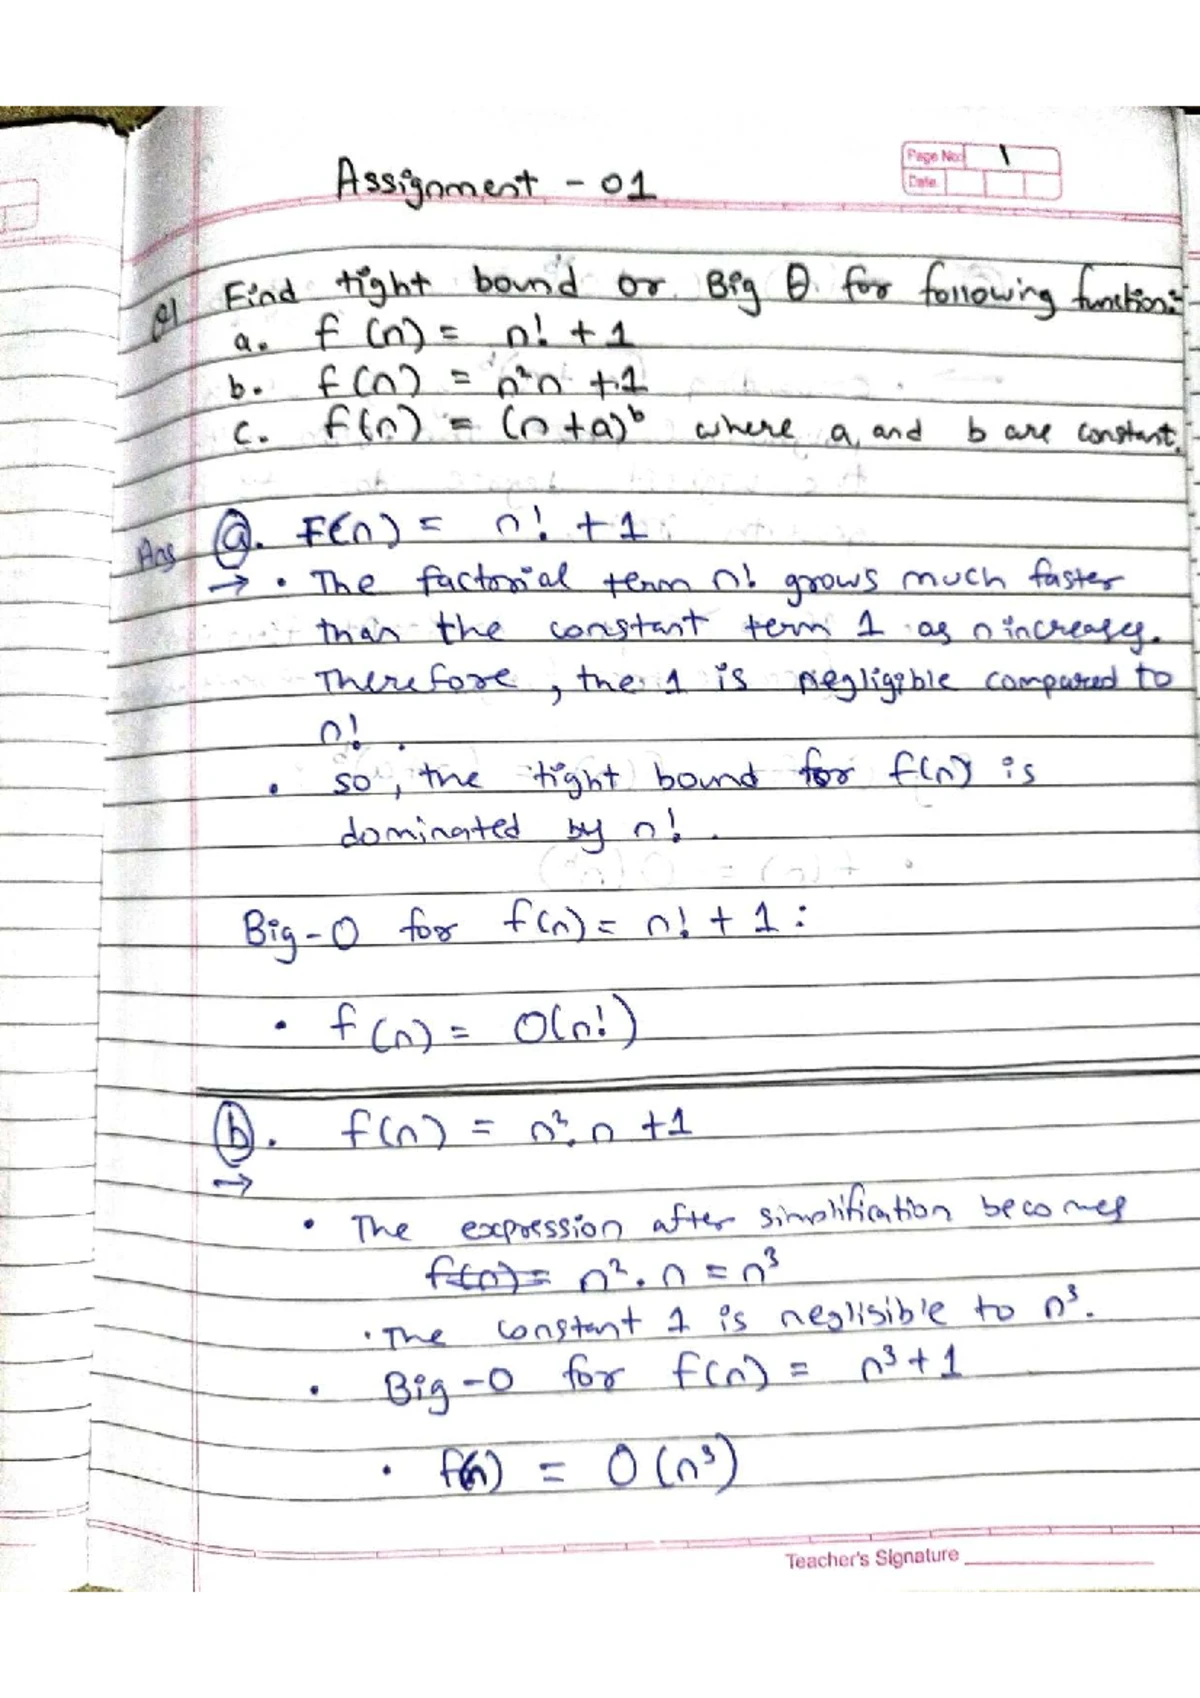 Page No: 1
Date.
Assignment - 01
Q1 Find tight bound or Big θ for following function:
a. f (n) = n! + 1
b. f(n) = n²n + 1
c. f(n) = (n+a)ᵇ where a and b are constant.
Ans (a). F(n) = n! + 1
→ • The factorial term n! grows much faster
than the constant term 1 as n increases.
Therefore, the 1 is negligible compared to
n!.
• so, the tight bound for f(n) is
dominated by n!.
Big-O for f(n) = n! + 1 :
• f(n) = O(n!)
(b). f(n) = n².n +1
→
• The expression after simplification becomes
f(n)= n².n = n³
• The constant 1 is neglisible to n³.
• Big-O for f(n) = n³+1
• f(n) = O(n³)
Teacher's Signature